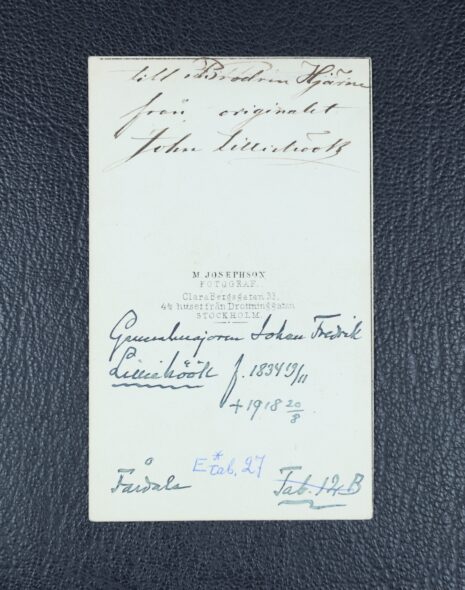 till Brodren Hjärne
från originalet
John Lilliehöök
M. JOSEPHSON
FOTOGRAF.
Clara Bergsgatan 33,
4de huset från Drottninggatan
STOCKHOLM.
Johan Fredrik
Lilliehöök f. 1834 19/11
+ 1918 20/8
E* tab. 27
Fårdala
Tab. 12 B